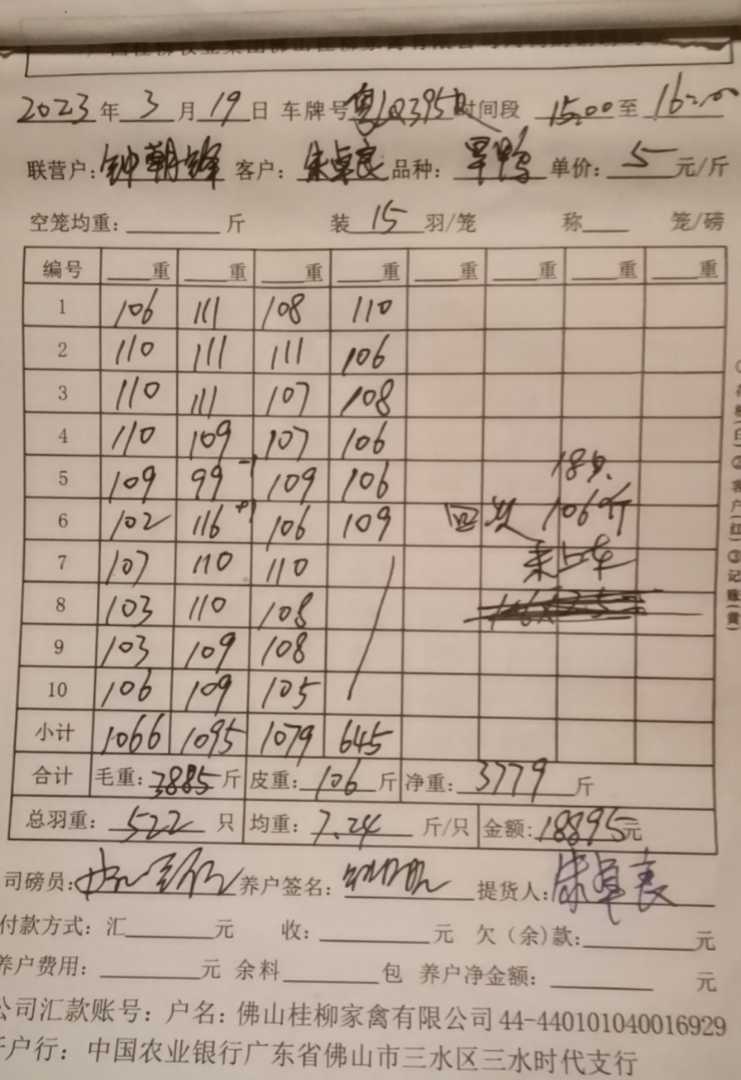 2023年3月19日 车牌号粤Q395 时间段 15:00至16:00
联营户:钟朝锋 客户:朱卓良 品种:旱鸭 单价:5元/斤
空笼均重:____斤 装15羽/笼 称____笼/磅
编号 ____重 ____重 ____重 ____重 ____重 ____重 ____重 ____重
1 106 111 108 110
2 110 111 111 106
3 110 111 107 108
4 110 109 107 106
5 109 99 -1 109 106 18只.
6 102 116 +1 106 109 106斤
7 107 110 110 未上车
8 103 110 108
9 103 109 108
10 106 109 105
小计 1066 1095 1079 645
合计 毛重:3885斤 皮重:106斤 净重:3779斤
总羽重:522只 均重:7.24斤/只 金额:18895元
司磅员: 养户签名: 提货人:朱卓良
付款方式:汇____元 收:____元 欠(余)款:____元
养户费用:____元 余料____包 养户净金额:____元
公司汇款账号:户名:佛山桂柳家禽有限公司 44-440101040016929
开户行:中国农业银行广东省佛山市三水区三水时代支行
②客户(红)③记账(黄)